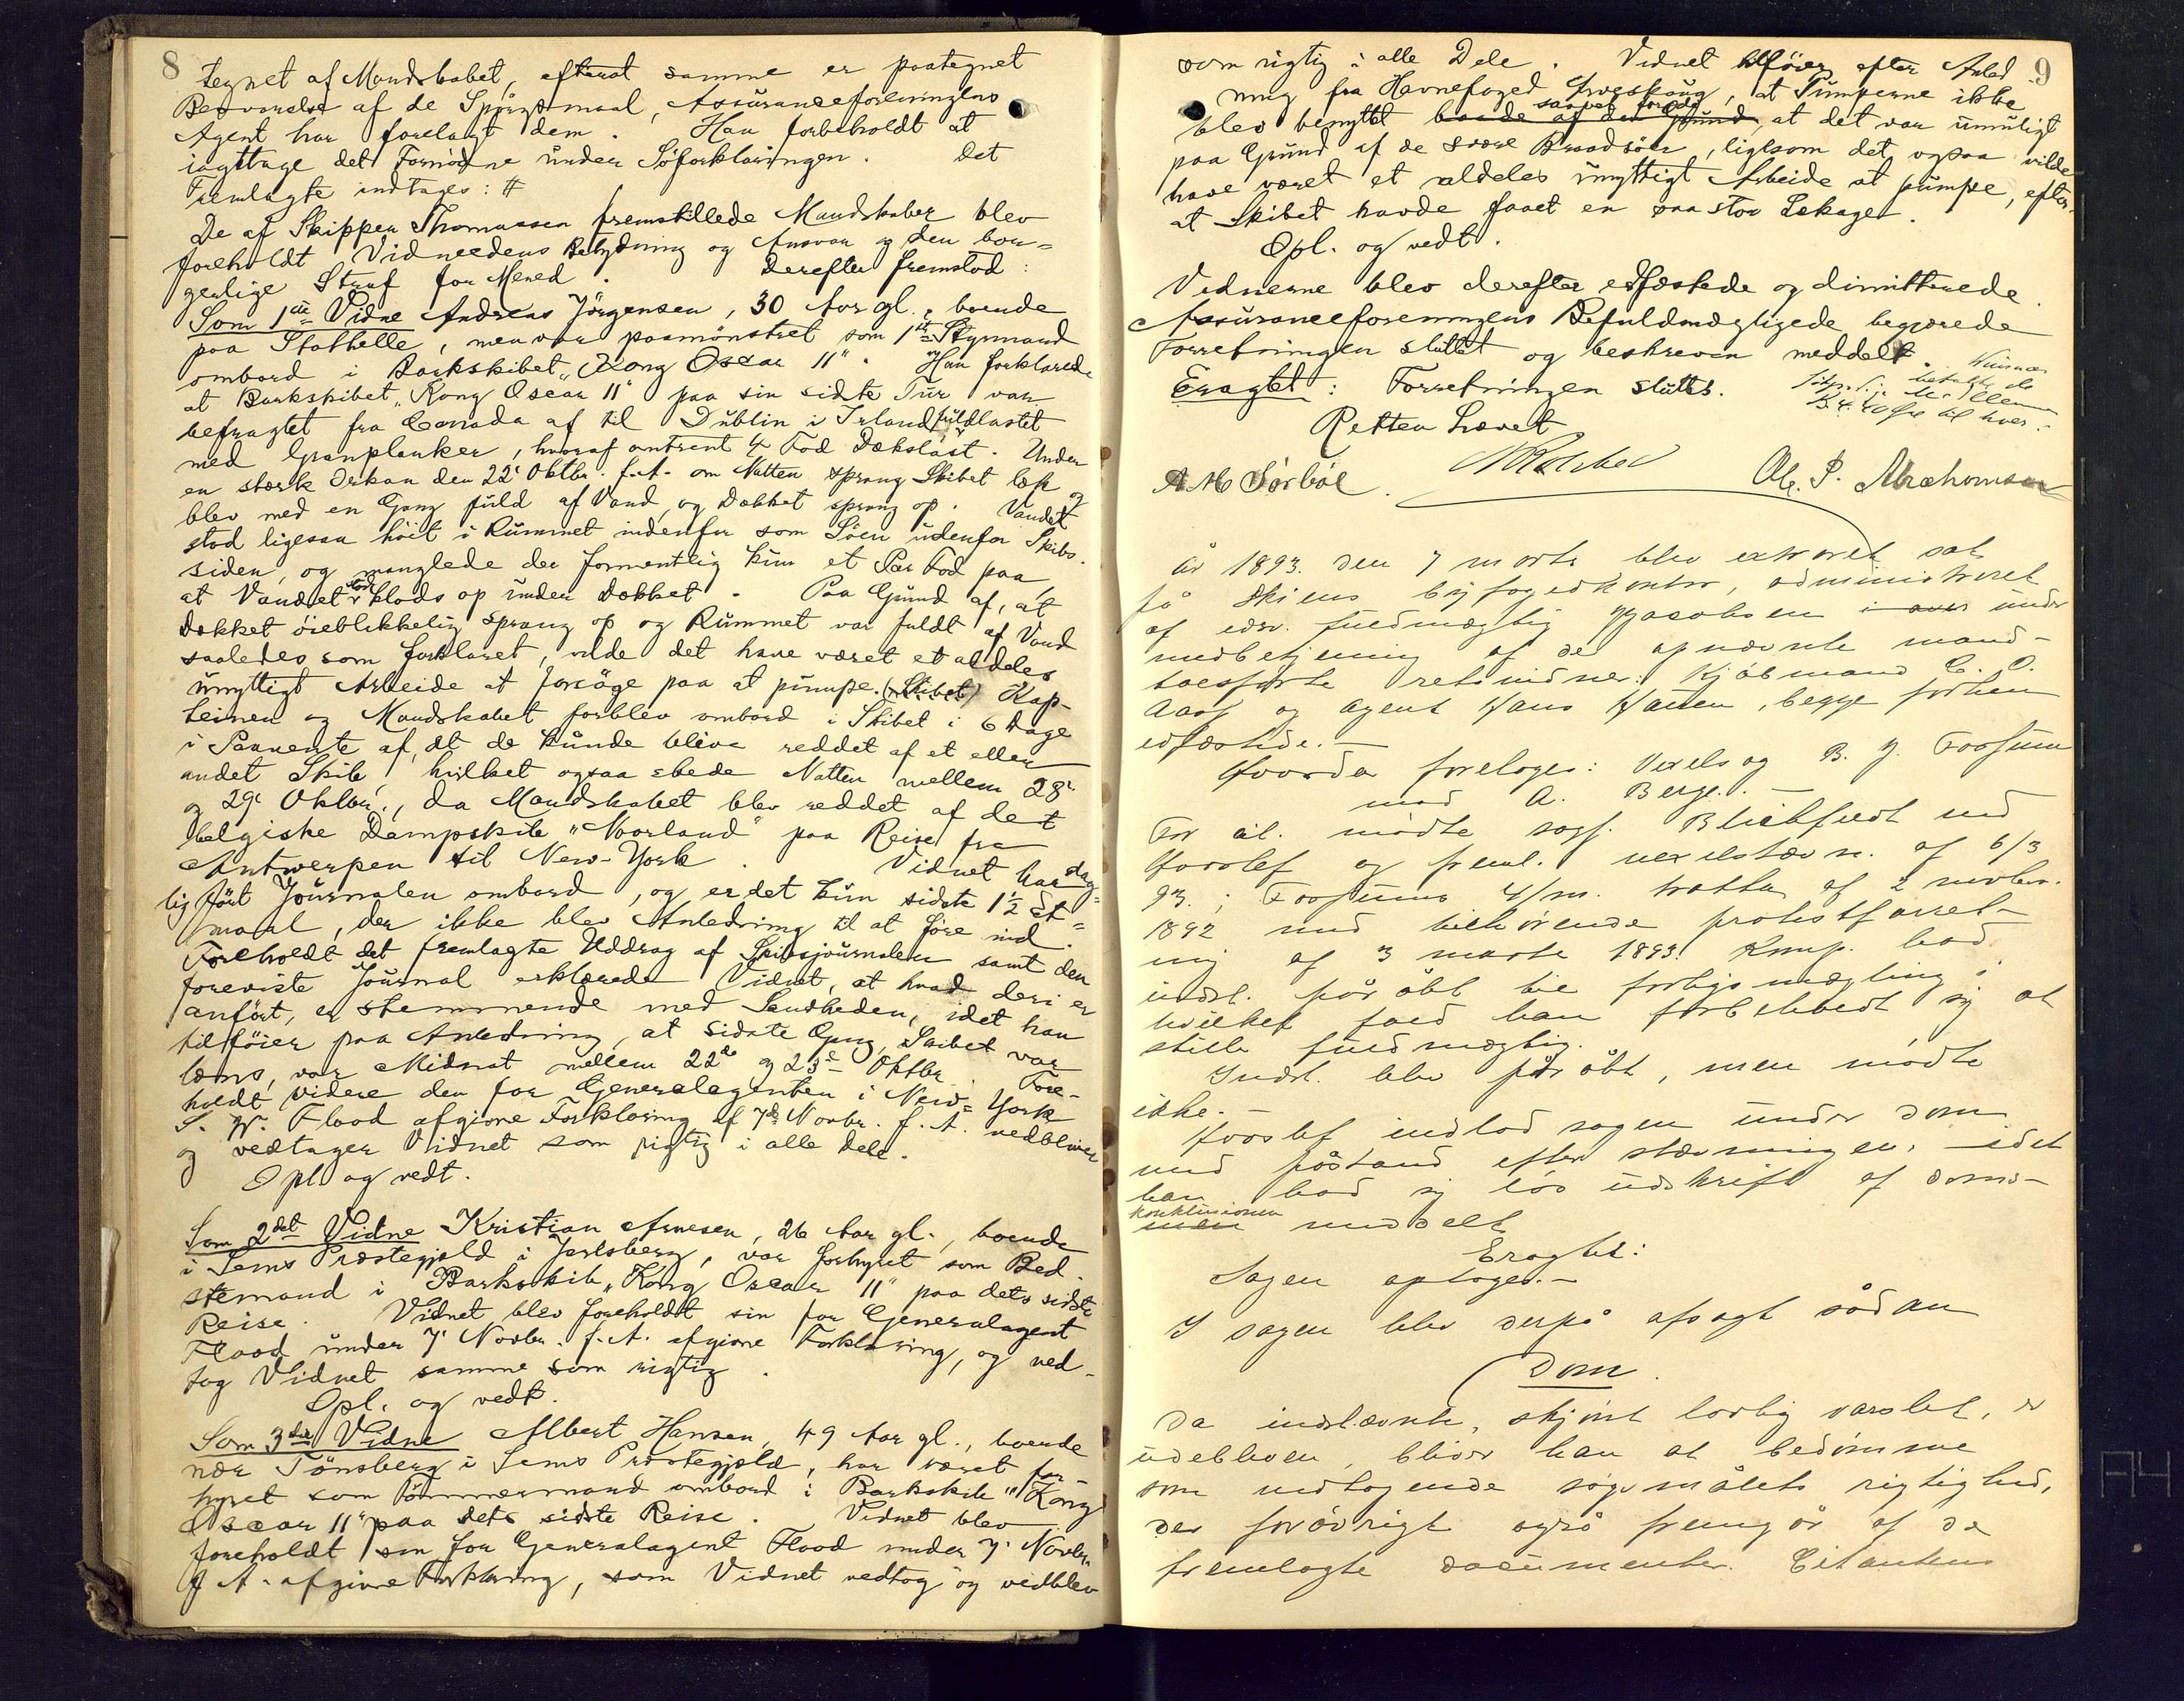 8
tegnet af Mandskabet, efterat samme er paategnet
Besvarelse af de Spörgsmaal, Assuranceforeningens
Agent har forelagt dem. Han forbeholdt at
iagttage det Fornödne under Söforklaringen. Det
Fremlagte indtages: #
De af Skipper Thomassen fremstillede Mandskaber blev
foreholdt Vidneedens Betydning og Ansvar og den bor-
gerlige Straf for Mened. Derefter fremstod:
Som 1ste Vidne Andreas Jörgensen, 30 Aar gl., boende
paa Stathelle, men var paamönstret som 1ste Styrmand
ombord i Barkskibet "Kong Oscar II". Han forklarede
at Barkskibet "Kong Oscar II" paa sin sidste Tur var
befragtet fra Canada af til Dublin i Irland fuldlastet
med Granplanker, hvoraf omtrent 4 Fod Dækslast. Under
en stærk Orkan den 22' Oktbr. f.A. om Natten sprang Skibet læk og
blev med en Gang fuld af Vand, og Dækket sprang op. Vandet
stod ligesaa höit i Rummet indenfor som Söen udenfor Skibs-
siden, og manglede der formentlig kun et Par Fod paa,
at Vandet stod klods op under Dækket. Paa Grund af, at
Dækket öieblikkelig sprang op og Rummet var fuldt af Vand
saaledes som forklaret, vilde det have været et aldeles
unyttigt Arbeide at forsöge paa at pumpe. (Skibet) Kap-
teinen og Mandskabet forblev ombord i Skibet i 6 Dage
i Paavente af, at de kunde blive reddet af et eller
andet Skib, hvilket ogsaa skede Natten mellem 28'
og 29' Oktbr., da Mandskabet blev reddet af det
belgiske Dampskib "Noorland" paa Reise fra
Antwerpen til New-York. Vidnet har dag-
lig fört Journalen ombord, og er det kun sidste 1½ Et-
maal, der ikke blev Anledning til at före ind.
Foreholdt det fremlagte Uddrag af Skibsjournalen samt den
foreviste Journal erklærede Vidnet, at hvad deri er
anfört, er stemmende med Sandheden, idet han
tilföier paa Anledning, at sidste Gang, Skibet var
læns, var Midnat mellem 22de og 23de Oktbr. Fore-
holdt videre den for Generalagenten i New-York
S. W. Flood afgivne Forklaring af 7de Novbr. f.A. vedbliver
og vedtager Vidnet som rigtig i alle Dele.
Opl. og vedt.
Som 2det Vidne Kristian Arnesen, 26 Aar gl., boende
i Sems Præstegjeld i Jarlsberg, var forhyret som Bed-
stemand i Barkskib "Kong Oscar II" paa dets sidste
Reise. Vidnet blev foreholdt sin for Generalagent
Flood under 7' Novbr. f.A. afgivne Forklaring, og ved-
tog Vidnet samme som rigtig.
Opl. og vedt.
Som 3die Vidne Albert Hansen, 49 Aar gl., boende
nær Tönsberg i Sems Præstegjeld, har været for-
hyret som Tömmermand ombord i Barkskib "Kong
Oscar II" paa dets sidste Reise. Vidnet blev
foreholdt sin for Generalagent Flood under 7' Novbr.
f.A. afgivne Forklaring, som Vidnet vedtog og vedblev
9
som rigtig i alle Dele. Vidnet tilföier efter Anled-
ning fra Havnefoged, at Pumperne ikke
blev benyttet baade af den Grund, at det var umuligt
paa Grund af de svære Braadsöer, ligesom det ogsaa vilde
have været et aldeles unyttigt Arbeide at pumpe, efter-
at Skibet havde faaet en saa stor Lækage.
Opl. og vedt.
Vidnerne blev derefter edfæstede og dimitterede.
Assuranceforeningens Befuldmægtigede begjærede
Forretningen sluttet og beskreven meddelt.
Eragtet: Forretningen sluttes.
Retten hævet
A M Sörböl. Ol. P. Abrahamsen
År 1893. den 7 marts blev extraret sat
på Skiens byfogedkontor, administreret
af edsv. fuldmægtig Jacobsen i over under
medbetjening af de opnævnte mand-
talsførte retsvidner: Kjøbmand C. O.
Aas og agent Hans Hansen, begge forhen
edfæstede. —
Hvorda foretoges: Vexelsag B. J. Fossum
mod A. Berge. —
For cit. mødte sagf. Blichfeldt ved
Hoorslef og freml. vexelstævn. af 6/3
93; Fossums 4/m. tratte af 2 novbr.
1892 med tilhørende protestforret-
ning af 3 marts 1893. Komp. bad
indst. påråbt til forligsmægling i
hvilket fald han forbeholdt sig at
stille fuldmægtig.
Indst. blev påråbt, men mødte
ikke. —
Hoorslef indlod sagen under dom
med påstand efter stævningen, idet
han bad sig løs udskrift af doms-
konklusionen meddelt
Eragtet:
Sagen optages. —
I sagen blev derpå afsagt sådan
Dom.
Da indstævnte, skjønt lovlig varslet, er
udebleven, bliver han at bedømme
som vedtagende søgsmålets rigtighed,
der forøvrigt også fremgår af de
fremlagte documenter. Citantens